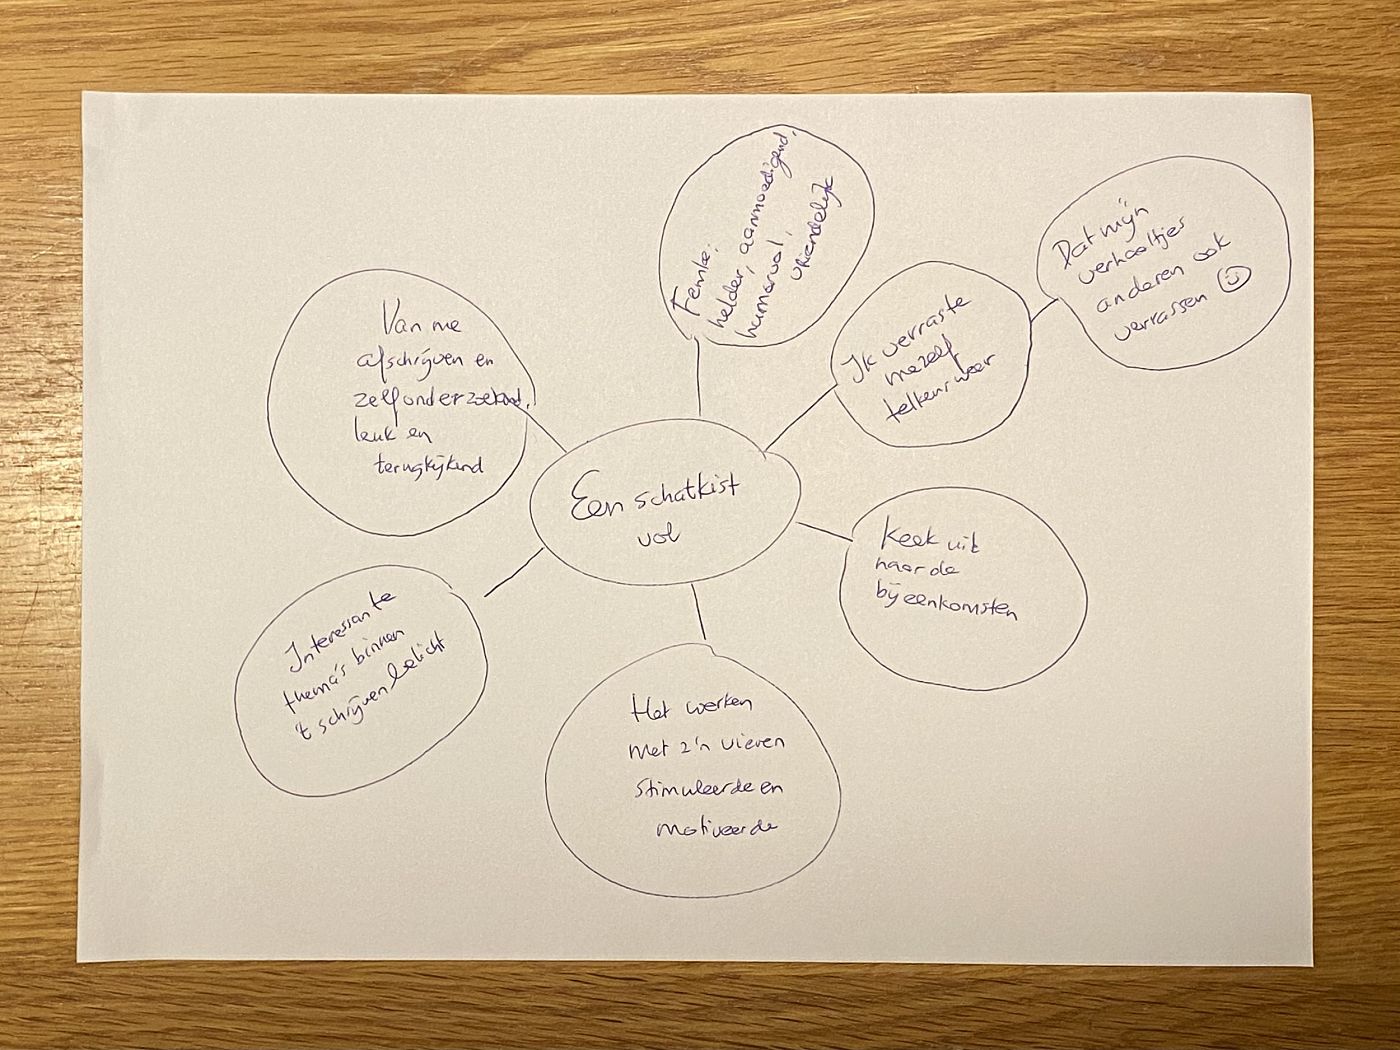 Een schatkist
vol
Femke:
helder, aanmoedigend,
humorvol,
vriendelijk
Ik verraste
mezelf
telkens weer
Dat mijn
verhaaltjes
anderen ook
verrassen ☺
Keek uit
naar de
bijeenkomsten
Het werken
met z'n vieren
stimuleerde en
motiveerde
Interessante
thema's binnen
't schrijven belicht
Van me
afschrijven en
zelfonderzoekend,
leuk en
terugkijkend